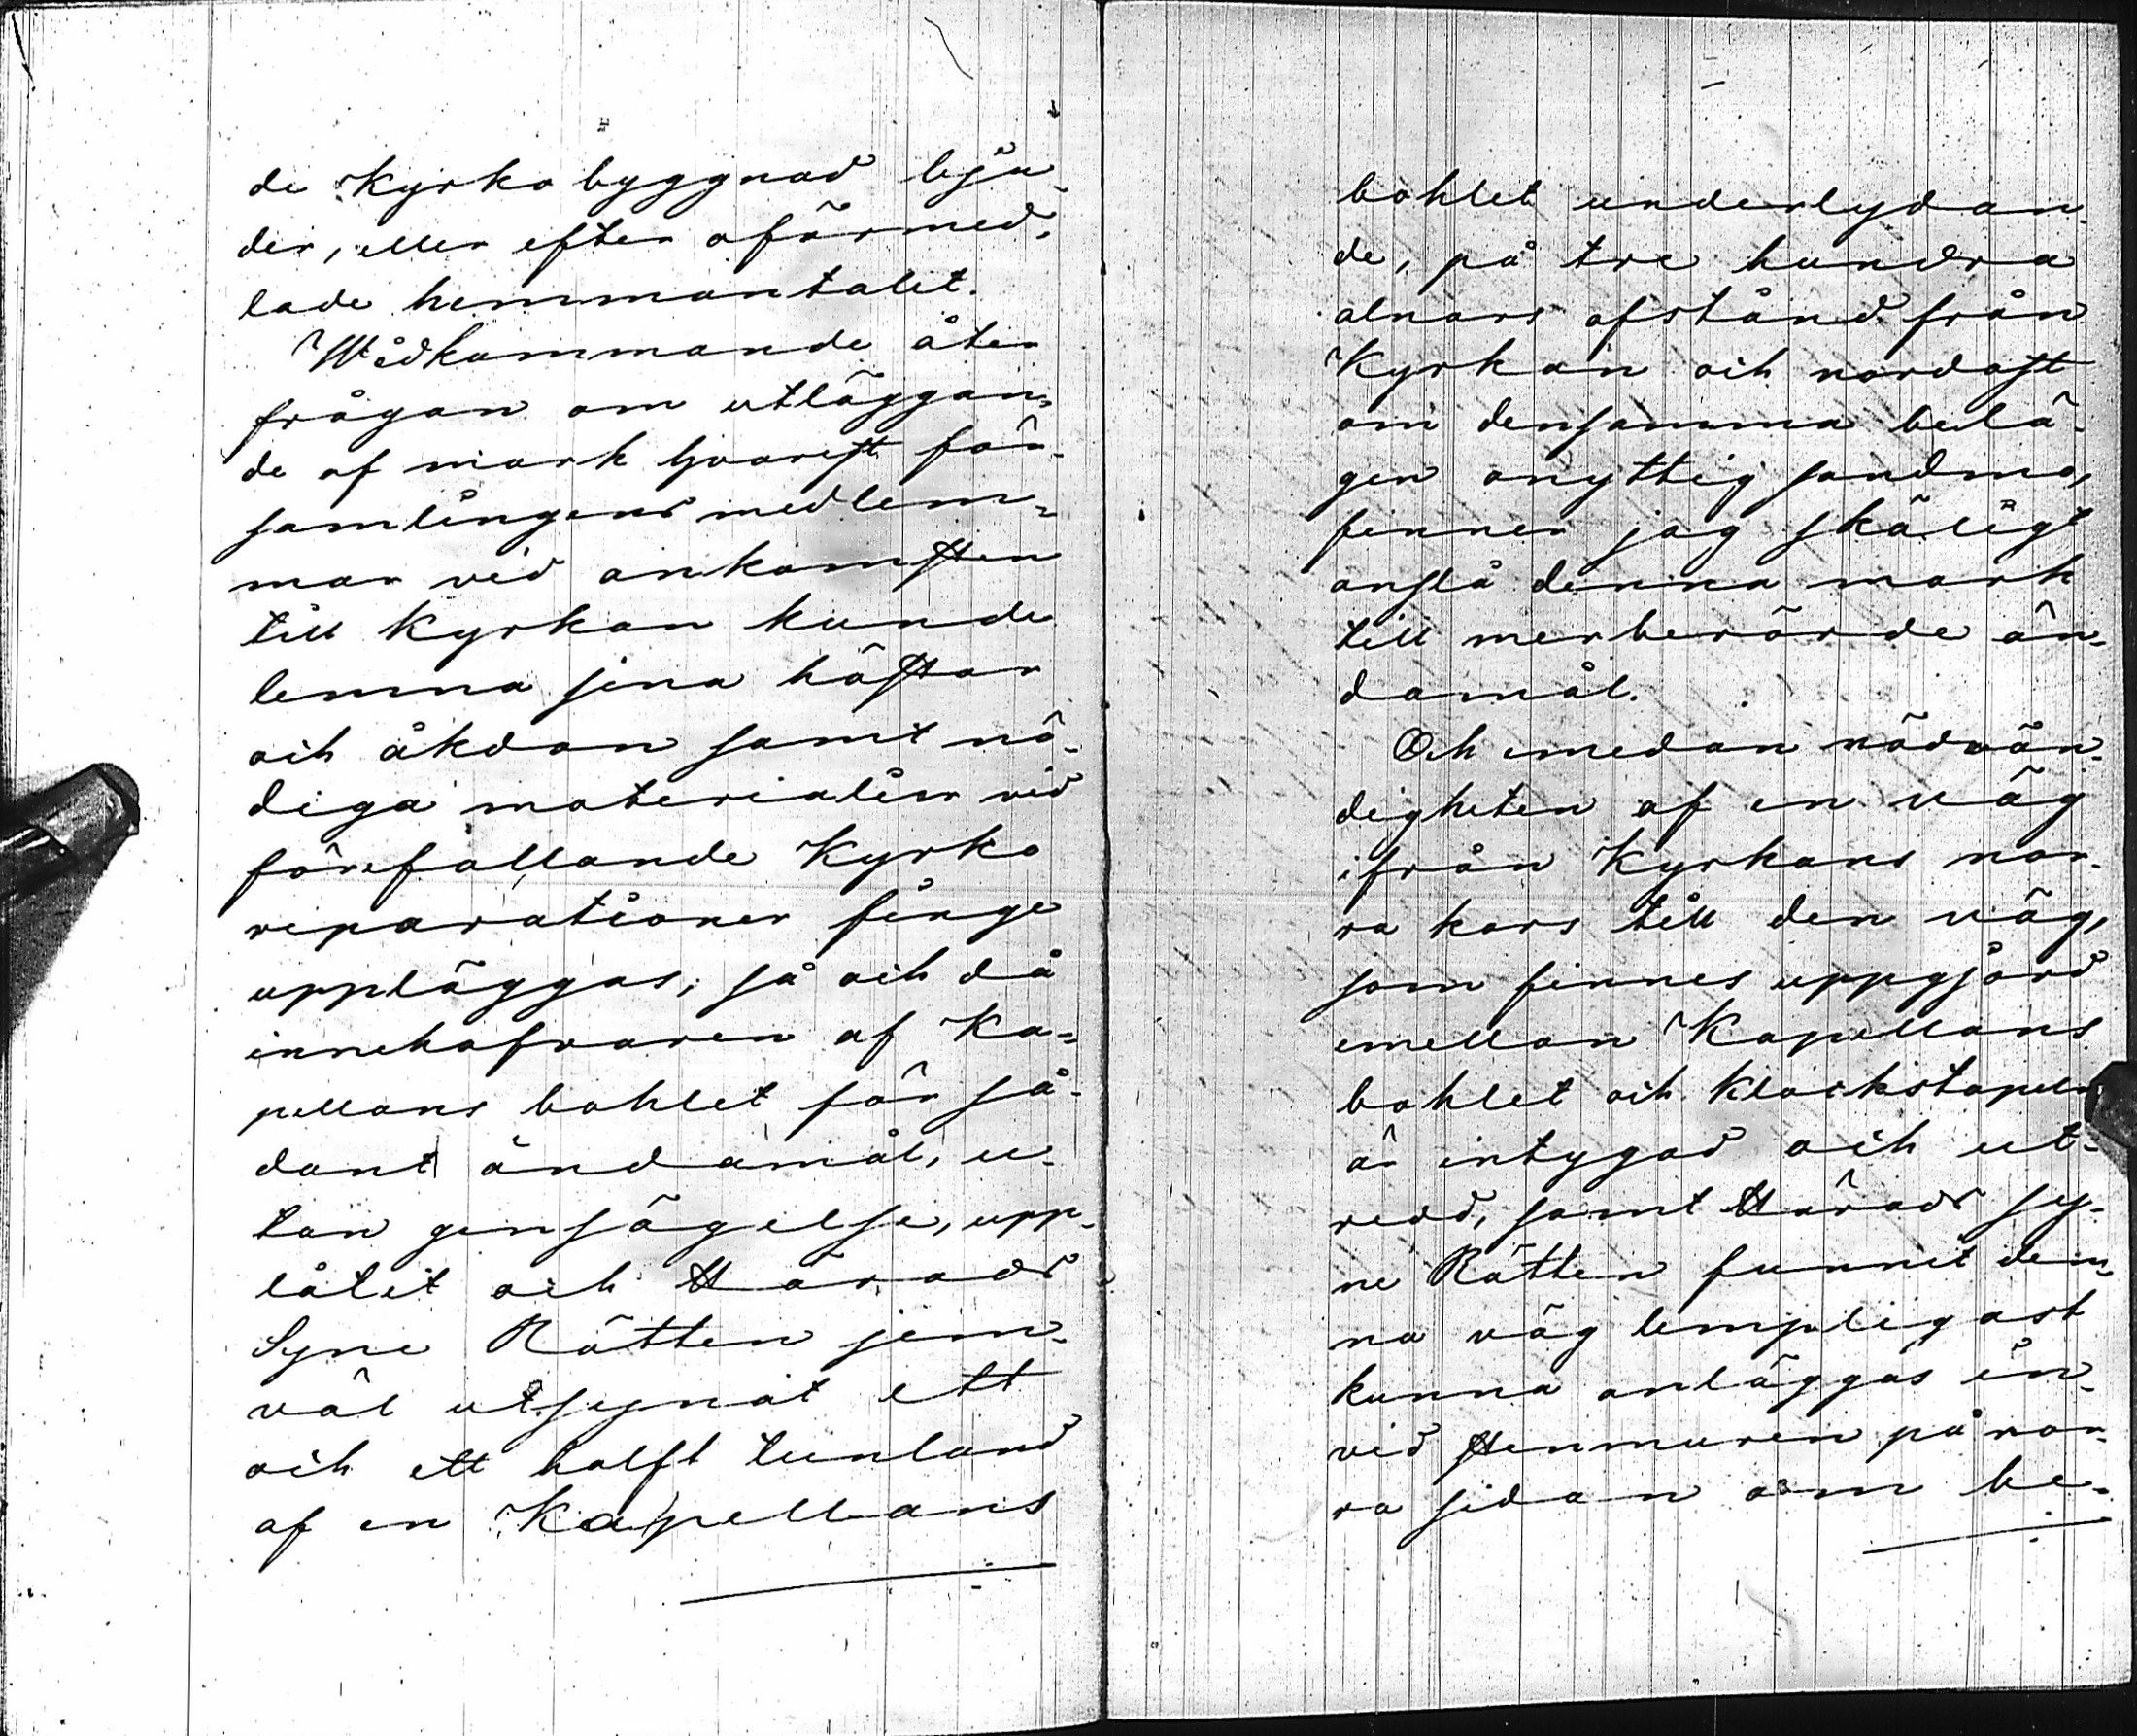 de Kyrko byggnad bju-
der, eller efter oförmed-
lade hemmantalet.
Widkommande åter
frågan om utläggan-
de af mark hvarest för-
samlingens medlem-
mar vid ankomsten
till Kyrkan kunde
lemna sina hästar
och åkdon samt nö-
diga materialier vid
förefallande Kyrko
reparationer finge
uppläggas; så och då
innehafvaren af Ka-
pellans bohlet för så-
dant ändamål, u-
tan gensägelse, upp-
låtit och Härads
Syne Rätten jem-
väl utsynat ett
och ett halft tunland
af en Kapellans
bohlet underlydan-
de, på tre hundra
alnars afstånd från
Kyrkan och nordost
om densamma belä-
gen onyttig sandmo,
finner jag skäligt
anslå denna mark
till merberörde än-
damål.
Och emedan nödvän-
digheten af en väg
ifrån Kyrkans nor-
ra kors till den väg,
som finnes uppgjord
emellan Kapellans
bohlet och Klockstapeln
är intygad och ut-
redd, samt Härads sy-
ne Rätten funnit den-
na väg lempligast
kunna anläggas in-
vid stenmuren på nor-
ra sidan om be-